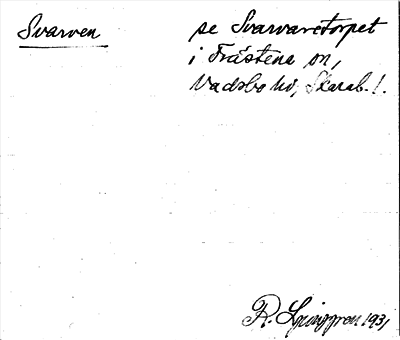 Svarven
se Svarvaretorpet
i Trästena sn,
Vadsbo hd, Skarab. l.
R. Ljunggren 1931